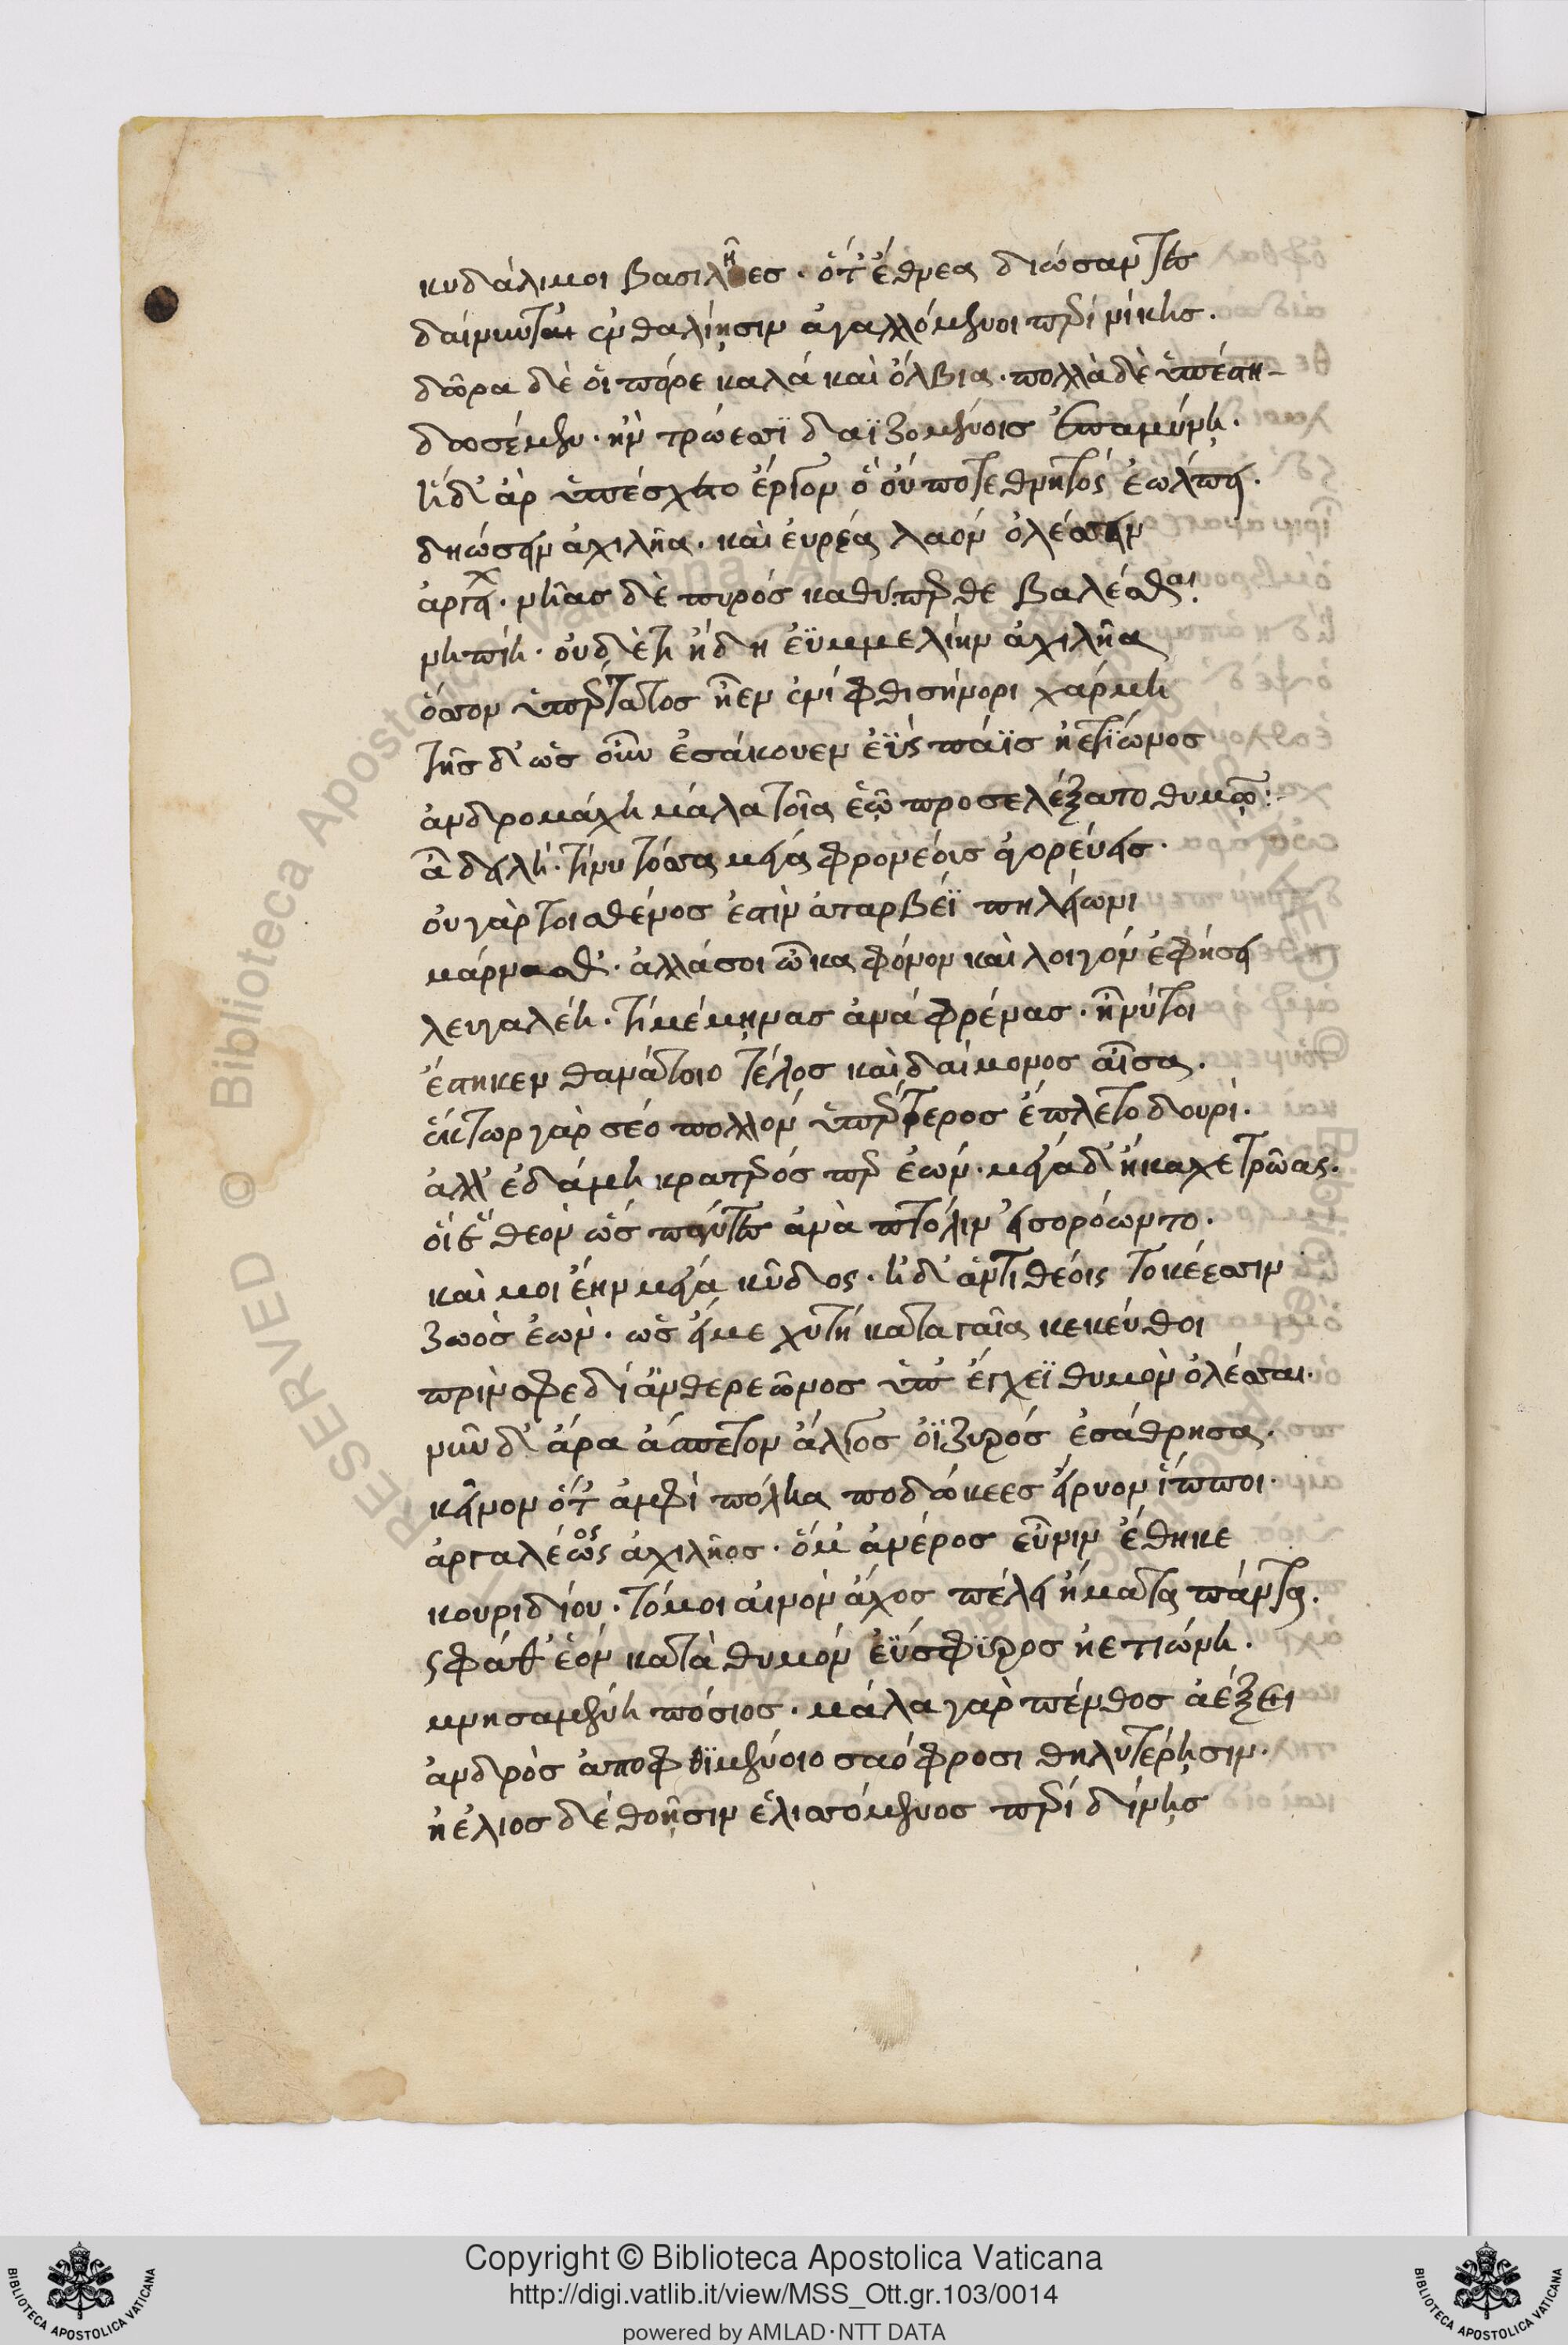 κυδάλιμοι βασιλῆες· ὁτ' ἔθνεα δηώσαντες
δαίνυνται ἐν θαλίῃσιν ἀγαλλόμενοι περὶ νίκης.
δῶρα δέ οἱ πόρε καλά καὶ ὄλβια· πολλὰ δὲ ὑπέστη
δωσέμεν· ἢν τρώεσσϊ δαϊζομένοις ἐπαμύνῃ.
ἡ δ' ἀρ ὑπέσχετο ἔργον ὃ οὔποτε θνητός ἐώλπει.
δηώσειν ἀχιλῆα· καὶ εὐρέα λαόν ὀλέσσειν
ἀργείων· νῆας δὲ πυρός καθύπερθε βαλέσθαι
νηπίη· οὐδ' ἔτι ἤδη ἐϋμμελίην ἀχιλῆα
ὅσσον ὑπέρτατος ἦεν ἐνί φθισήνορι χάρμῃ
τῆς δ' ὡς οὖν ἐσάκουεν ἐΰς πάϊς ἠετΐωνος
ἀνδρομάχη μάλα τοῖα ἑῷ προσελέξατο θυμῷ:
ἆ δειλή· τί νυ τόσσα μέγά φρονέοις ἀγορεύεις·
οὐ γάρ τοι σθένος ἐστὶν ἀταρβέϊ πηλείωνι
μάρνασθ'· ἀλλά σοι ὦκα φόνον καὶ λοιγόν ἐφήσει
λευγαλέη· τί μέμηνας ἀνά φρένας· ἦ νύ τοι
ἕστηκεν θανάτοιο τέλος καὶ δαίμονος αἶσα.
ἕκτωρ γάρ σέο πολλόν ὑπέρτερος ἔπλετο δουρί.
ἀλλ' ἐδάμη κρατερός περ ἐών· μέγά δ' ἤκαχε τρῶας.
οἵ ἑ θεόν ὥς πάντες ἀνὰ πτόλιν εἰσορόωντο.
καὶ μοι ἔην μέγά κῦδος· ἠδ' ἀντιθέοις τοκέεσσιν
ζωὸς ἐών· ὡς εἴμε χυτή κατα γαῖα κεκεύθοι
πρίν σφε δι' ἀνθερεῶνος ὑπ' ἔγχεϊ θυμὸν ὀλέσσαι.
νῦν δ' ἄρα ἄσπετον ἄλγος ὀϊζυρός ἐσάθρησα.
κεῖνον ὅτ' ἀμφὶ πόληα ποδώκεες εἴρυον ἵπποι.
ἀργαλέως ἀχιλῆος· ὅς μ' ἀνέρος εὖνιν ἔθηκε
κουριδίου· τό μοι αἰνόν ἄχος πέλει ἤματα πάντα.
ς φάθ' ἑόν κατὰ θυμόν ἐΰσφϋρος ἠετιώνη.
μνησαμένη πόσιος· μάλα γάρ πένθος ἀέξει
ἀνδρὸς ἀποφθϊμένοιο σαόφροσι θηλυτέρῃσιν.
ἠέλιος δέ θοῇσιν ἑλισσόμενος περί δίνῃς
Copyright © Biblioteca Apostolica Vaticana
http://digi.vatlib.it/view/MSS_Ott.gr.103/0014
powered by AMLAD·NTT DATA